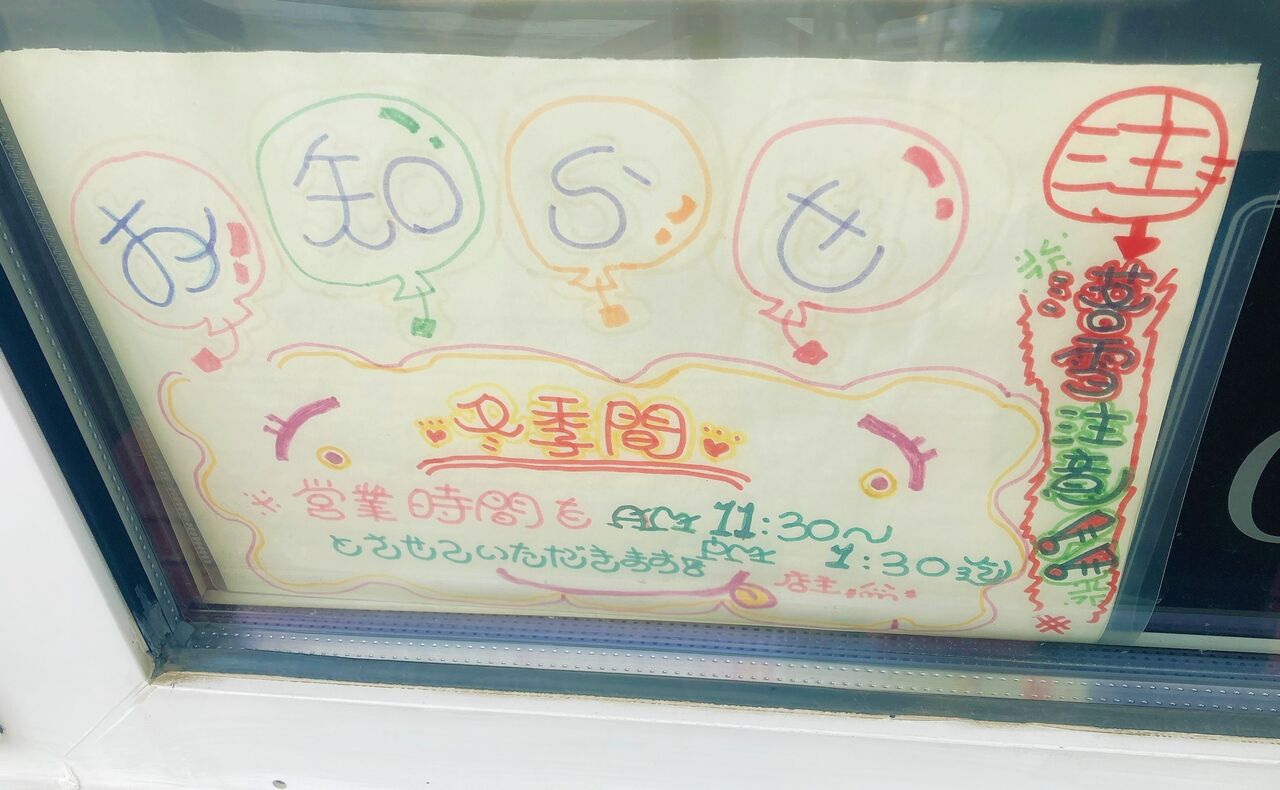 お知らせ
冬季間
※営業時間を AM 11:30〜
PM 1:30迄
とさせていただきます
店主
落雪注意!!